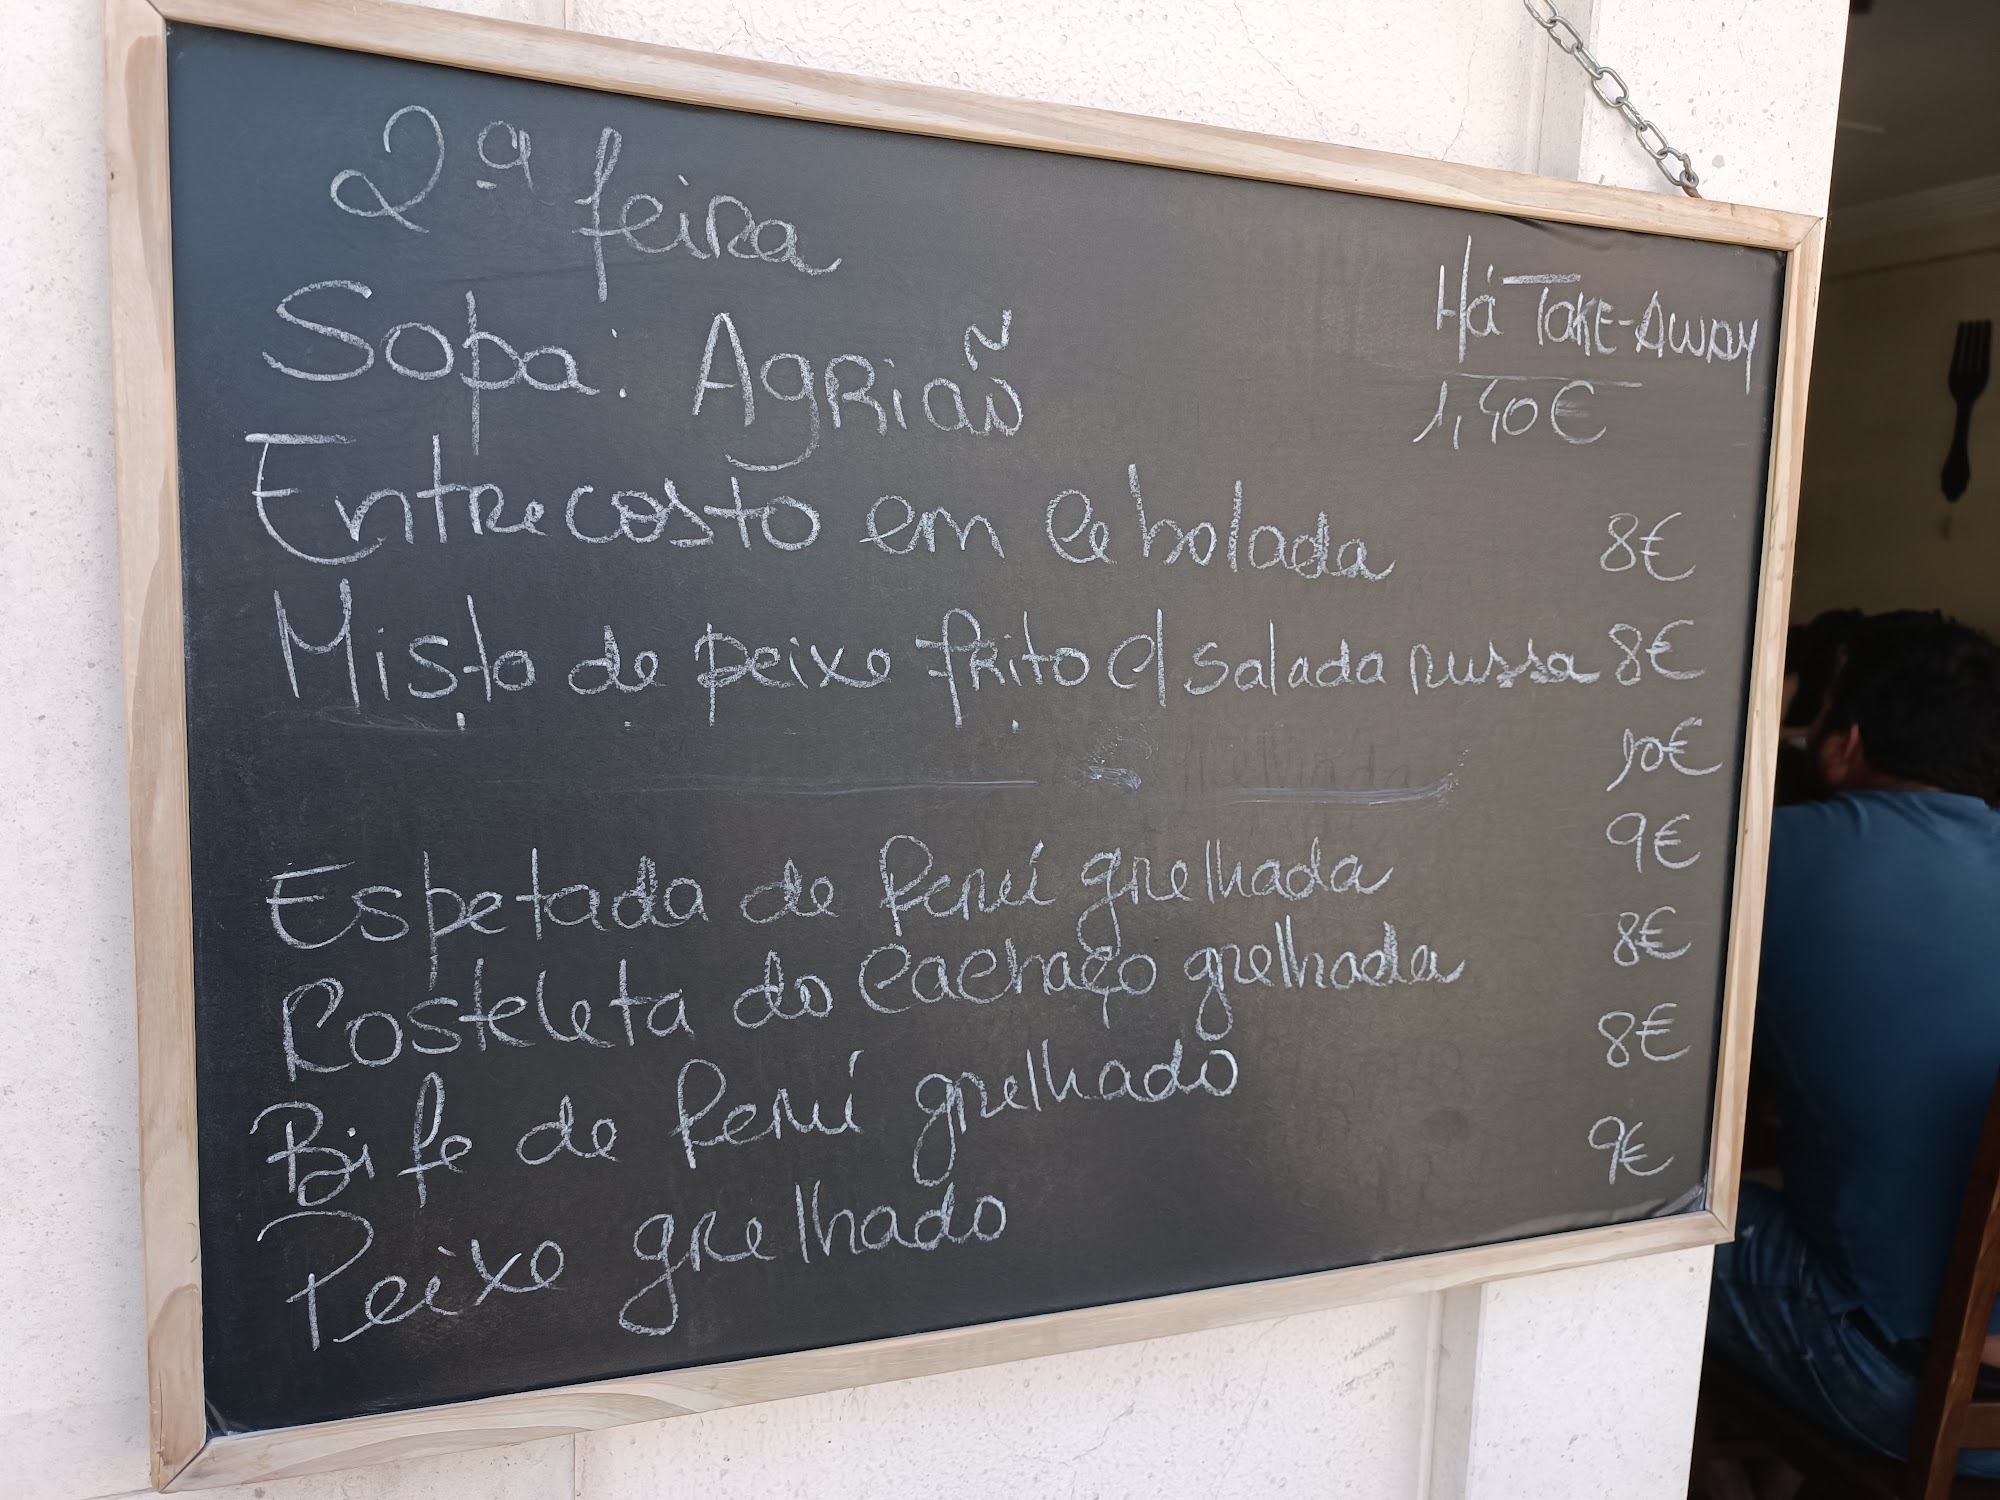 2ª feira
Há TAKE-AWAY
Sopa: Agrião 1,40€
Entrecosto em Cebolada 8€
Misto de peixe frito c/ salada russa 8€
10€
Espetada de Perú grelhada 9€
Costeleta do Cachaço grelhada 8€
Bife de Perú grelhado 8€
Peixe grelhado 9€